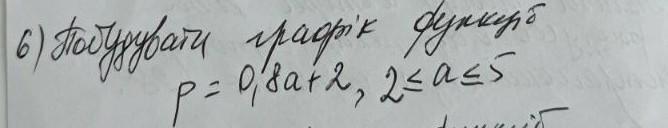 6) Побудувати графік функції
p = 0,8a + 2, 2 ≤ a ≤ 5